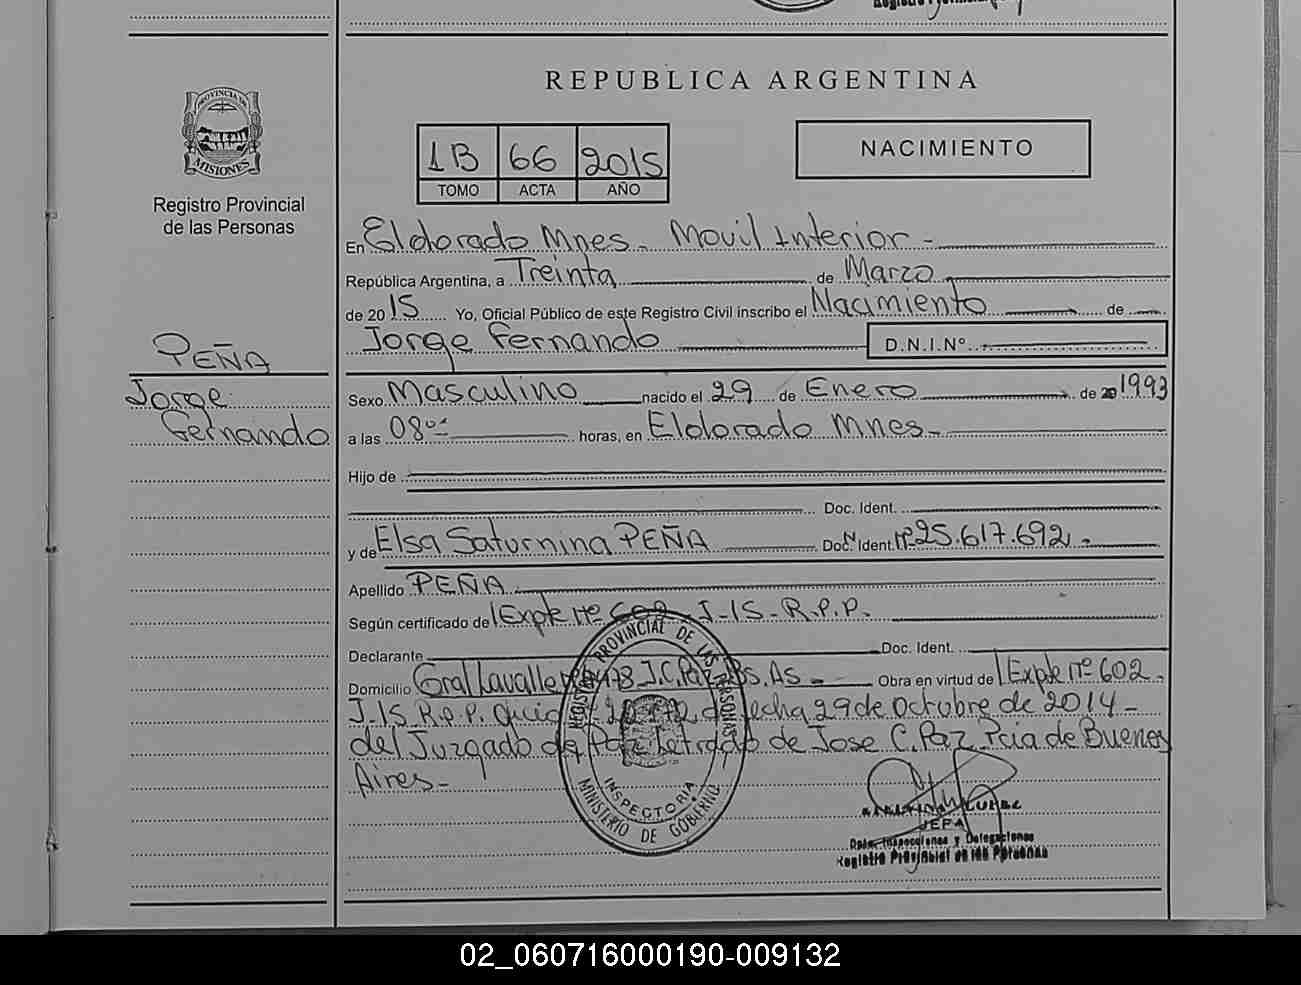 REPUBLICA ARGENTINA
PROVINCIA DE
MISIONES
Registro Provincial
de las Personas
1B 66 2015
TOMO ACTA AÑO
NACIMIENTO
En Eldorado Mnes - Movil Interior -
República Argentina, a Treinta de Marzo
de 2015 Yo, Oficial Público de este Registro Civil inscribo el Nacimiento de
Jorge Fernando D.N.I.Nº
PEÑA
Jorge
Fernando
Sexo Masculino nacido el 29 de Enero de 1993
a las 08 horas, en Eldorado Mnes -
Hijo de
Doc. Ident.
y de Elsa Saturnina PEÑA Doc. Ident. Nº 25.617.692 -
Apellido PEÑA
Según certificado de Expte Nº 602 J-15-R.P.P.
Declarante Doc. Ident.
Domicilio Gral Lavalle J.C. Paz Bs. As - Obra en virtud de Expte Nº 602 -
J-15 R.P.P. fecha 29 de Octubre de 2014 -
del Juzgado de Paz Letrado de Jose C. Paz Pcia de Buenos
Aires -
REGISTRO PROVINCIAL DE LAS PERSONAS
INSPECTORIA
MINISTERIO DE GOBIERNO
JEFA
Dpto. Inspecciones y Delegaciones
Registro Provincial de las Personas
02_060716000190-009132